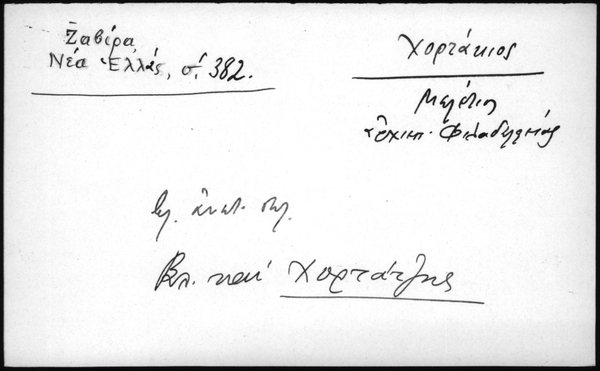 Ζαβίρα
Νέα Ἑλλάς, σ. 382.
Χορτάκιος
Μελέτιος
Φιλαδελφείας
Βλ. καὶ Χορτάτζης